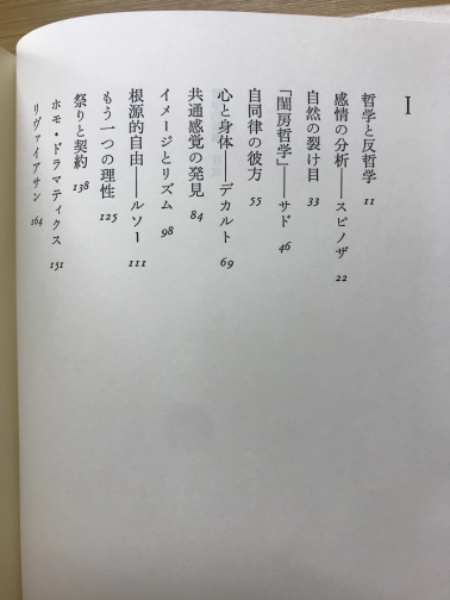 I
哲学と反哲学 11
感情の分析——スピノザ 22
自然の裂け目 33
「閨房哲学」——サド 46
自同律の彼方 55
心と身体——デカルト 69
共通感覚の発見 84
イメージとリズム 98
根源的自由——ルソー 111
もう一つの理性 125
祭りと契約 138
ホモ・ドラマティクス 151
リヴァイアサン 164